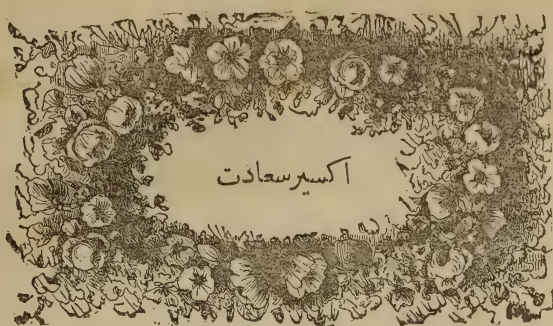 اکسیر سعادت